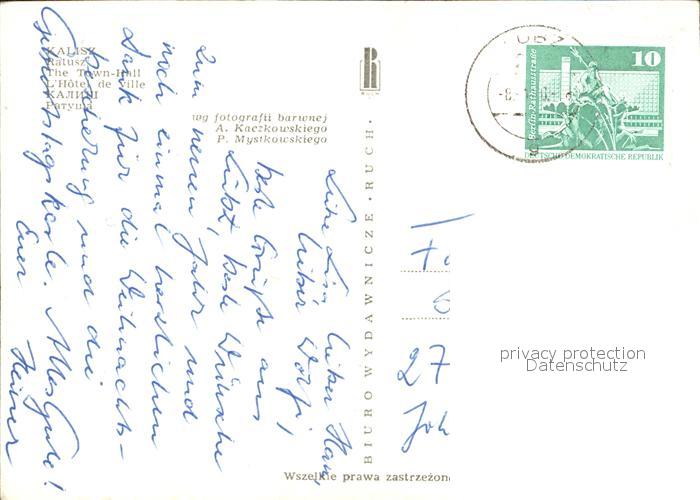 KALISZ
Ratusz
The Town-Hall
L'Hôtel de Ville
КАЛИШ
Ратуша
wg fotografii barwnej
A. Kaczkowskiego
P. Mystkowskiego
BIURO WYDAWNICZE • RUCH •
Wszelkie prawa zastrzeżon
10
Berlin-Rathausstraße
DEUTSCHE DEMOKRATISCHE REPUBLIK
Liebe Lisa, lieber Hans,
lieber Wolfi!
Beste Grüße aus
Lübz, beste Wünsche
zum neuen Jahr und
noch einmal herzlichen
Dank für die Weihnachts-
und die
Geburtstagskarte. Alles Gute!
Euer
Heiner
27
Joh
privacy protection
Datenschutz